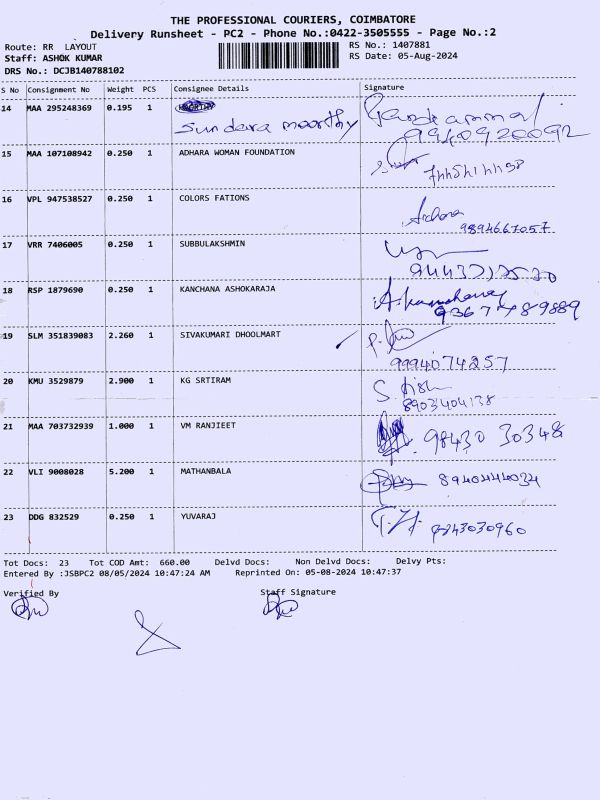 THE PROFESSIONAL COURIERS, COIMBATORE
Delivery Runsheet - PC2 - Phone No.:0422-3505555 - Page No.:2
Route: RR LAYOUT
RS No.: 1407881
Staff: ASHOK KUMAR
RS Date: 05-Aug-2024
DRS No.: DCJB140788102
S No Consignment No Weight PCS Consignee Details Signature
14 MAA 295248369 0.195 1 MOORTHY
Sundara moorthy
9940920092
15 MAA 107108942 0.250 1 ADHARA WOMAN FOUNDATION
16 VPL 947538527 0.250 1 COLORS FATIONS
Archana
9894667057
17 VRR 7406005 0.250 1 SUBBULAKSHMIN
18 RSP 1879690 0.250 1 KANCHANA ASHOKARAJA
9367489889
19 SLM 351839083 2.260 1 SIVAKUMARI DHOOLMART
9994074257
20 KMU 3529879 2.900 1 KG SRTIRAM
8903404138
21 MAA 703732939 1.000 1 VM RANJIEET
98430 30348
22 VLI 9008028 5.200 1 MATHANBALA
8940444034
23 DDG 832529 0.250 1 YUVARAJ
9843030960
Tot Docs: 23 Tot COD Amt: 660.00 Delvd Docs: Non Delvd Docs: Delvy Pts:
Entered By :JSBPC2 08/05/2024 10:47:24 AM Reprinted On: 05-08-2024 10:47:37
Verified By Staff Signature